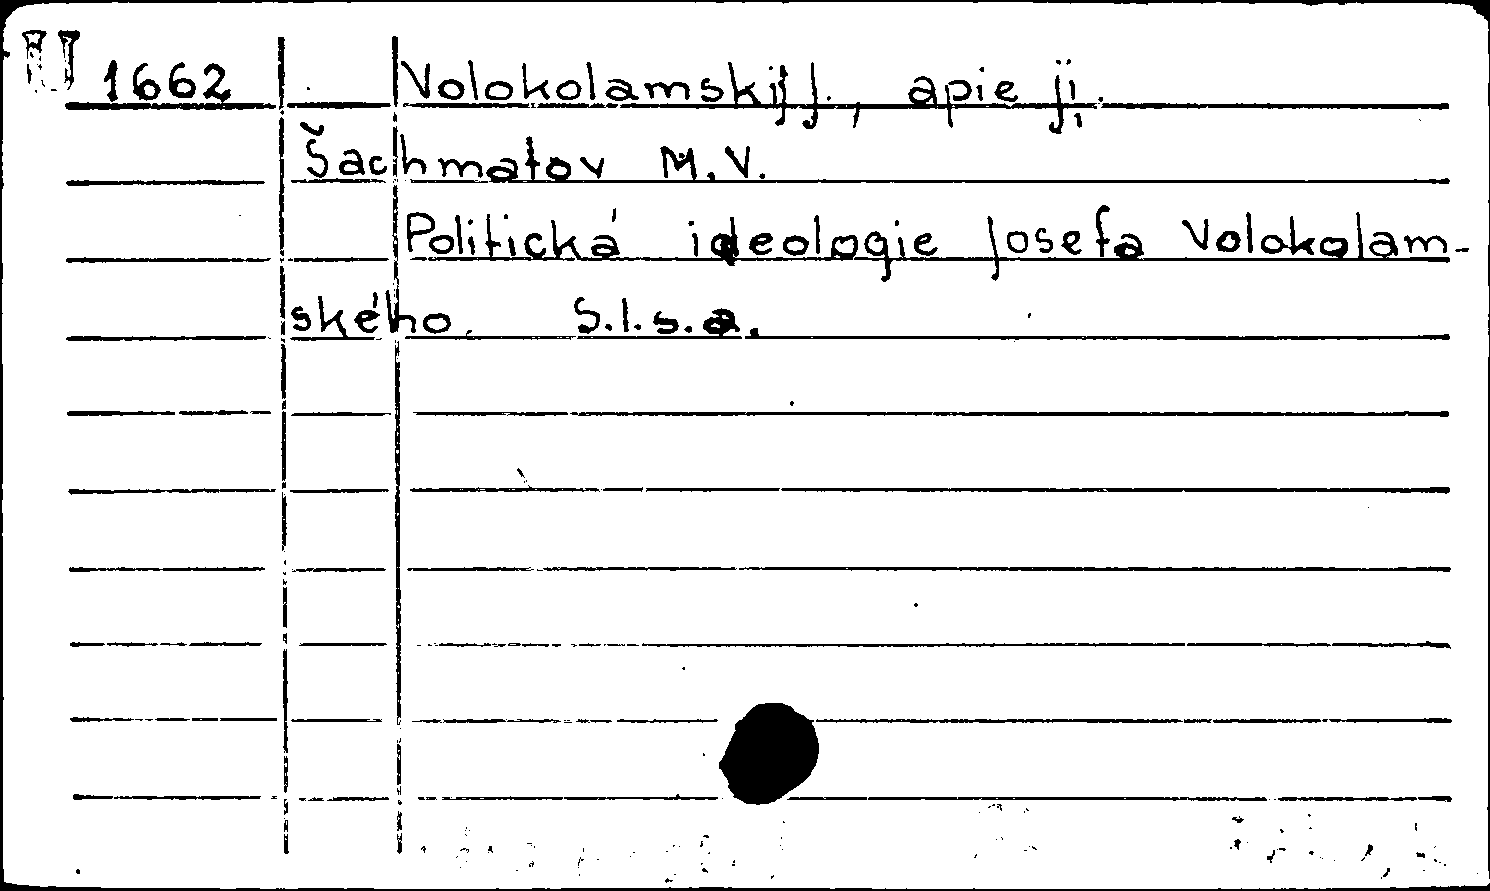 1662 Volokolamskij J., apie jį.
Šachmatov M.V.
Politická ideologie Josefa Volokolam-
ského. S.l.s.a.